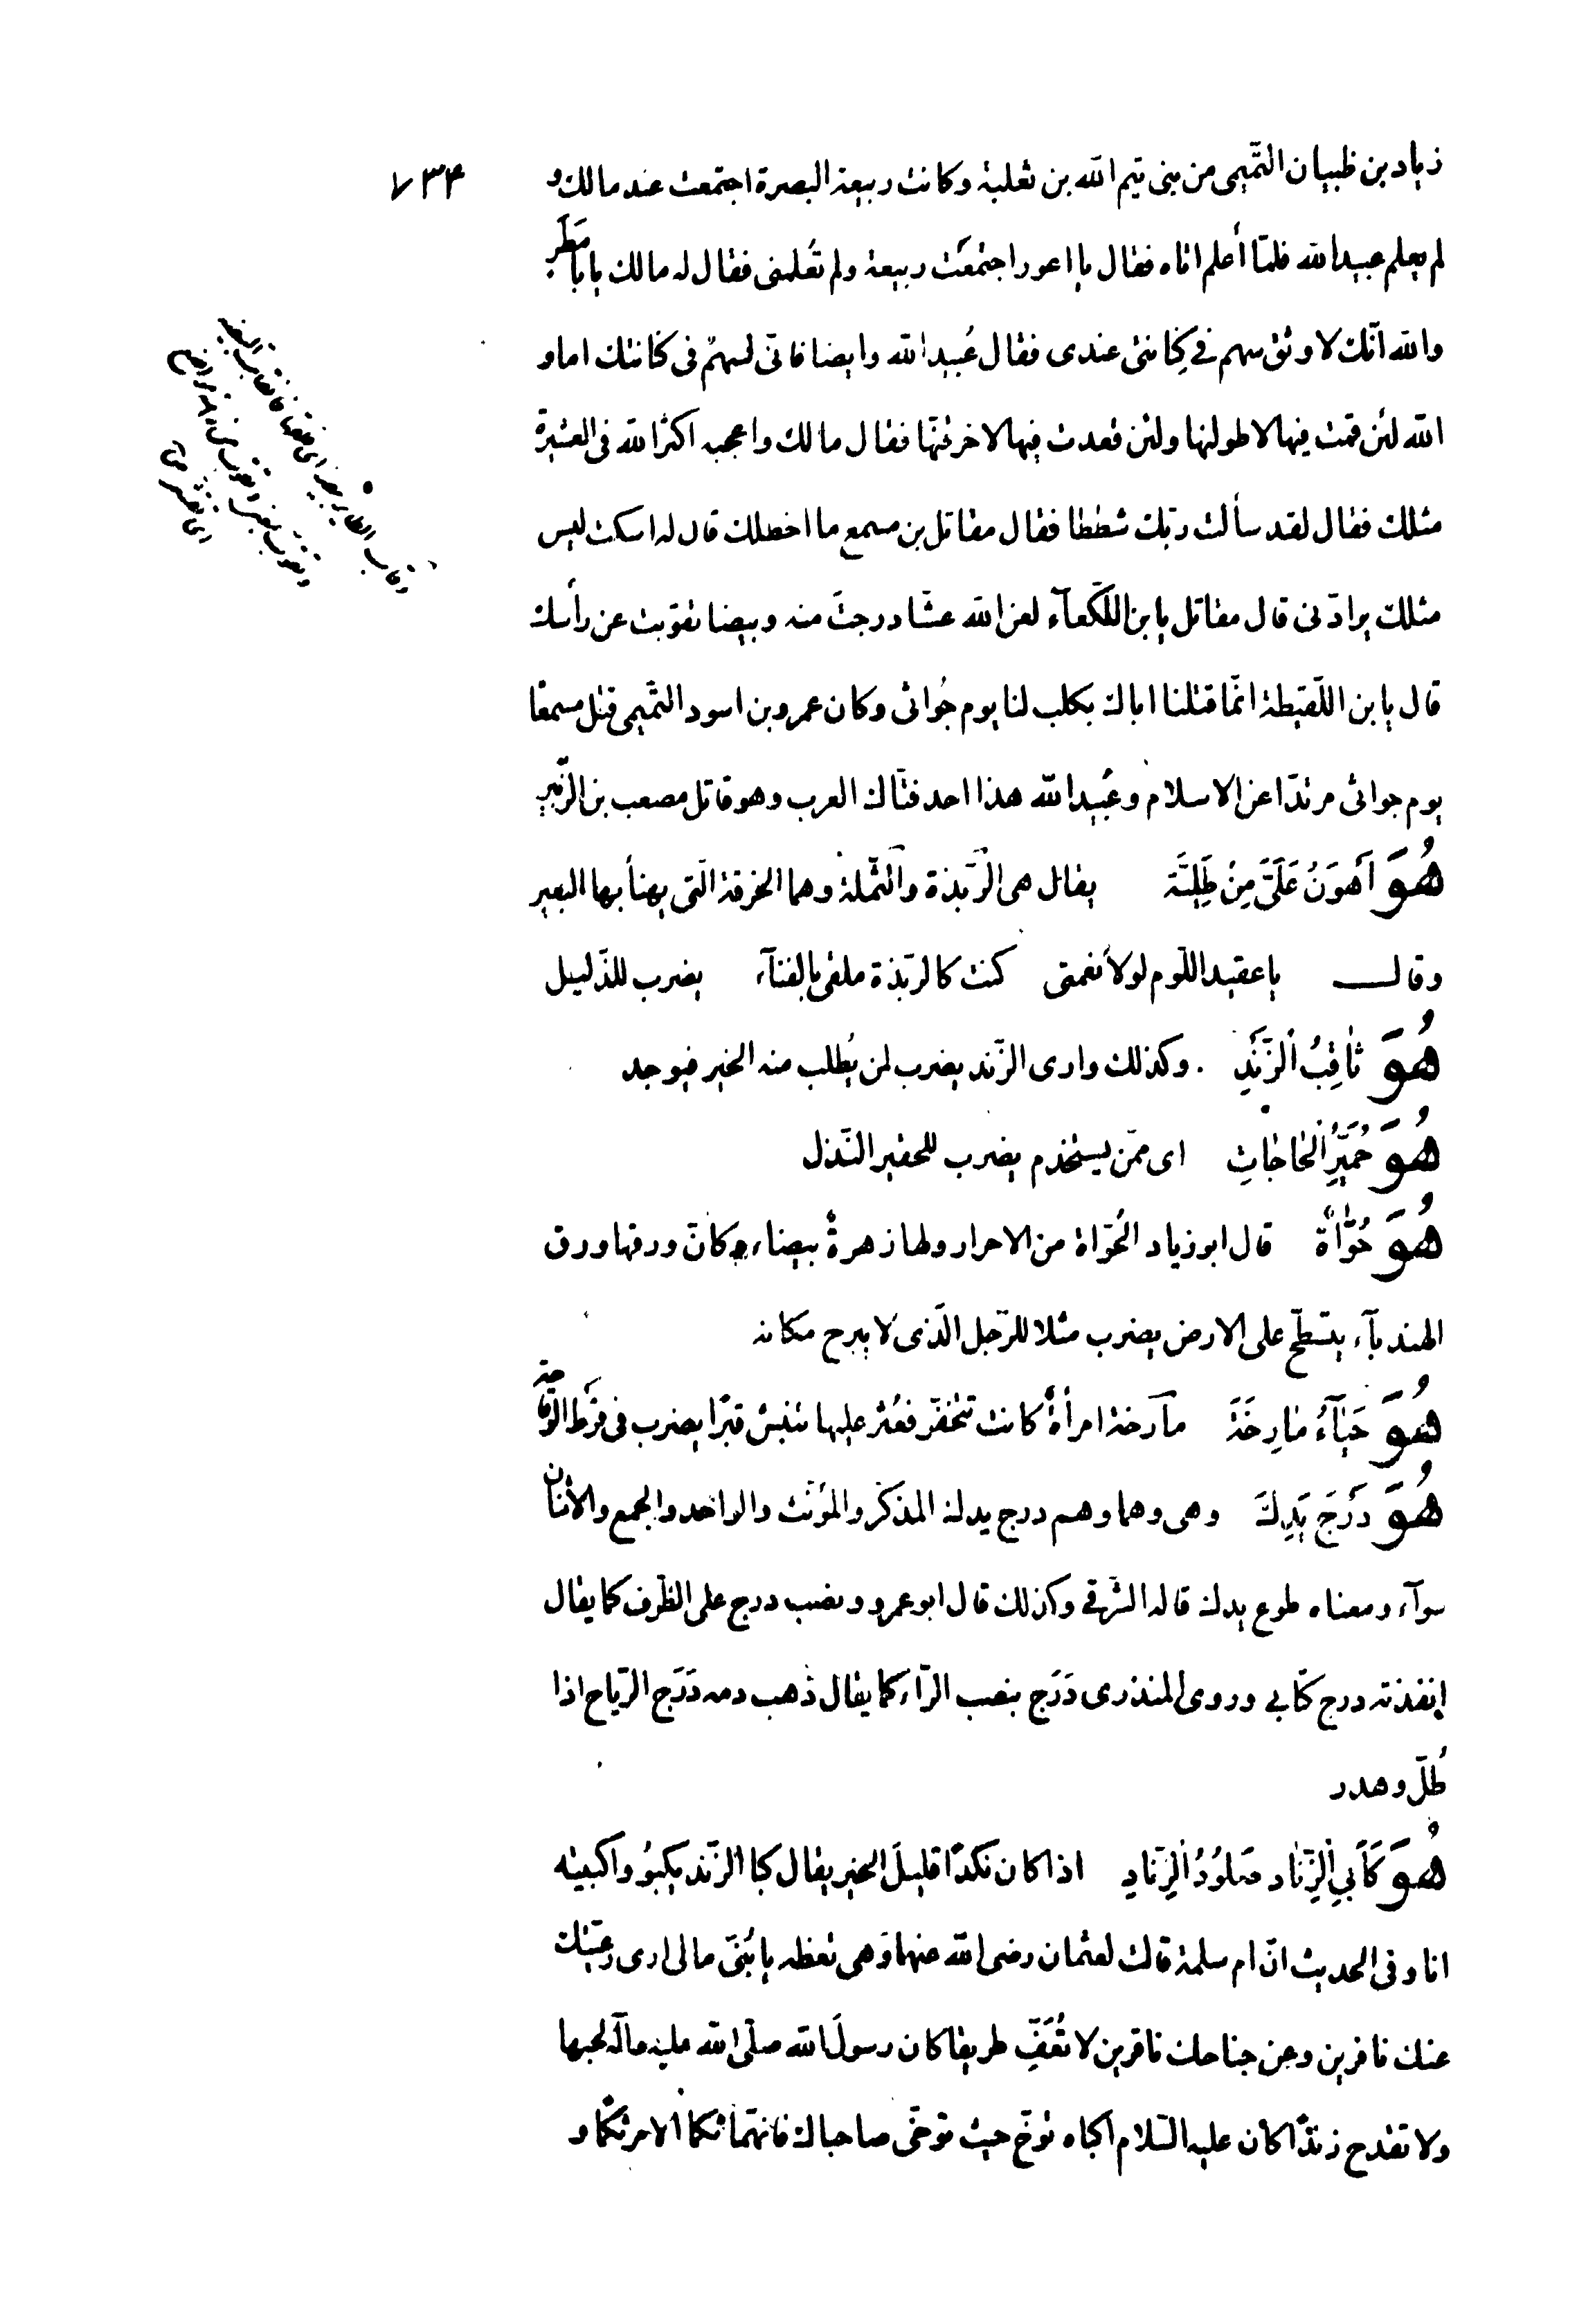 ۷۳۴
زياد بن ظبيان التّميمى من بنى تيم اللّه بن ثعلبة وكانت ربيعة البصرة اجتمعت عند مالك و
لم يعلم عبيد اللّه فلمّا أعلم اتاه فقال يا اعور اجتمعَت ربيعة ولم تُعلمنى فقال له مالك يا با مَطَر
واللّه انّك لاوثق سهم فى كِنانتى عندى فقال عُبيد اللّه وايضا فانّى لسهمٌ فى كنانتك اما و
اللّه لئن قمت فيها لاطولنها ولئن قعدت فيها لاخرقنّها فقال مالك واعجبه اكثر اللّه فى العشيرة
مثلك فقال لقد سألت ربّك شططا فقال مقاتل بن مسمع ما اخطلك قال له اسكت ليس
مثلك يرادّنى قال مقاتل يا بن اللّكعآء لعن اللّه عشّا درجتَ منه وبيضا تقوّبت عن رأسك
قال يا بن اللّقيطة انّما قتلنا اباك بكلب لنا يوم جُواثى وكان عمرو بن اسود التّميمى قتل مسمعًا
يوم جواثى مرتدّا عن الاسلام وعُبيد اللّه هذا احد فتّاك العرب وهو قاتل مصعب بن الزّبير
هُوَ اَهوَنُ عَلَىَّ مِنْ طَلِيَّة يقال هى الرّبذة والثّملة وهما الخرقة الّتى يهنأ بها البعير
وقال يا عقيد اللّوم لولا نعمتى كنت كالرّبذة ملقى بالفنآء يضرب للذّليل
هُوَ ثاقِبُ الزَّندِ وكذلك وارى الزّند يضرب لمن يُطلب منه الخير فيوجد
هُوَ حُمَيِّرُ الْحاجاتِ اى ممّن يستخدم يضرب للحقير النّذل
هُوَ حُوّاءَةٌ قال ابو زياد الحُوّاة من الاحرار ولها زهرةٌ بيضاء وكانّ ورقها ورق
الهندبآء يتسطّح على الارض يضرب مثلا للرّجل الّذى لا يبرح مكانه
هُوَ حَيآءُ مارِخَةَ مآرخة امرأةٌ كانت تتخفّر فعُثر عليها تنبش قبرًا يضرب فى فرْط الوقاحة
هُوَ دَرْجَ يَدِكَ وهى وهما وهم درج يدك المذكّر والمؤنّث والواحد والجمع والاثنان
سوآء ومعناه طوع يدك قاله الشّرقى وكذلك قال ابو عمرو ونصب درج على الظّرف كما يقال
انفذته درج كتابى وروى المنذرى دَرَج بنصب الرّآء كما يقال ذهب دمه دَرَج الرّياح اذا
طُلّ وهدر
هُوَ كَابِى الزِّناد صَلُودُ الزِّنادِ اذا كان نكدًا قليلَ الخير يقال كبا الزّند يكبُو واكبيته
انا وفى الحديث انّ ام سلمة قالت لعثمان رضى اللّه عنهما وهى تعظه يا بُنَىّ مالى ارى رعيّتك
عنك نافرين وعن جناحك ناقرين لا تُعَفِّ طريقا كان رسولُ اللّه صلّى اللّه عليه وآله لحبها
ولا تقدح زندًا كان عليه السّلام اكباه توخّ حيث توخّى صاحباك فانهما ثكما الامر ثكمًا و